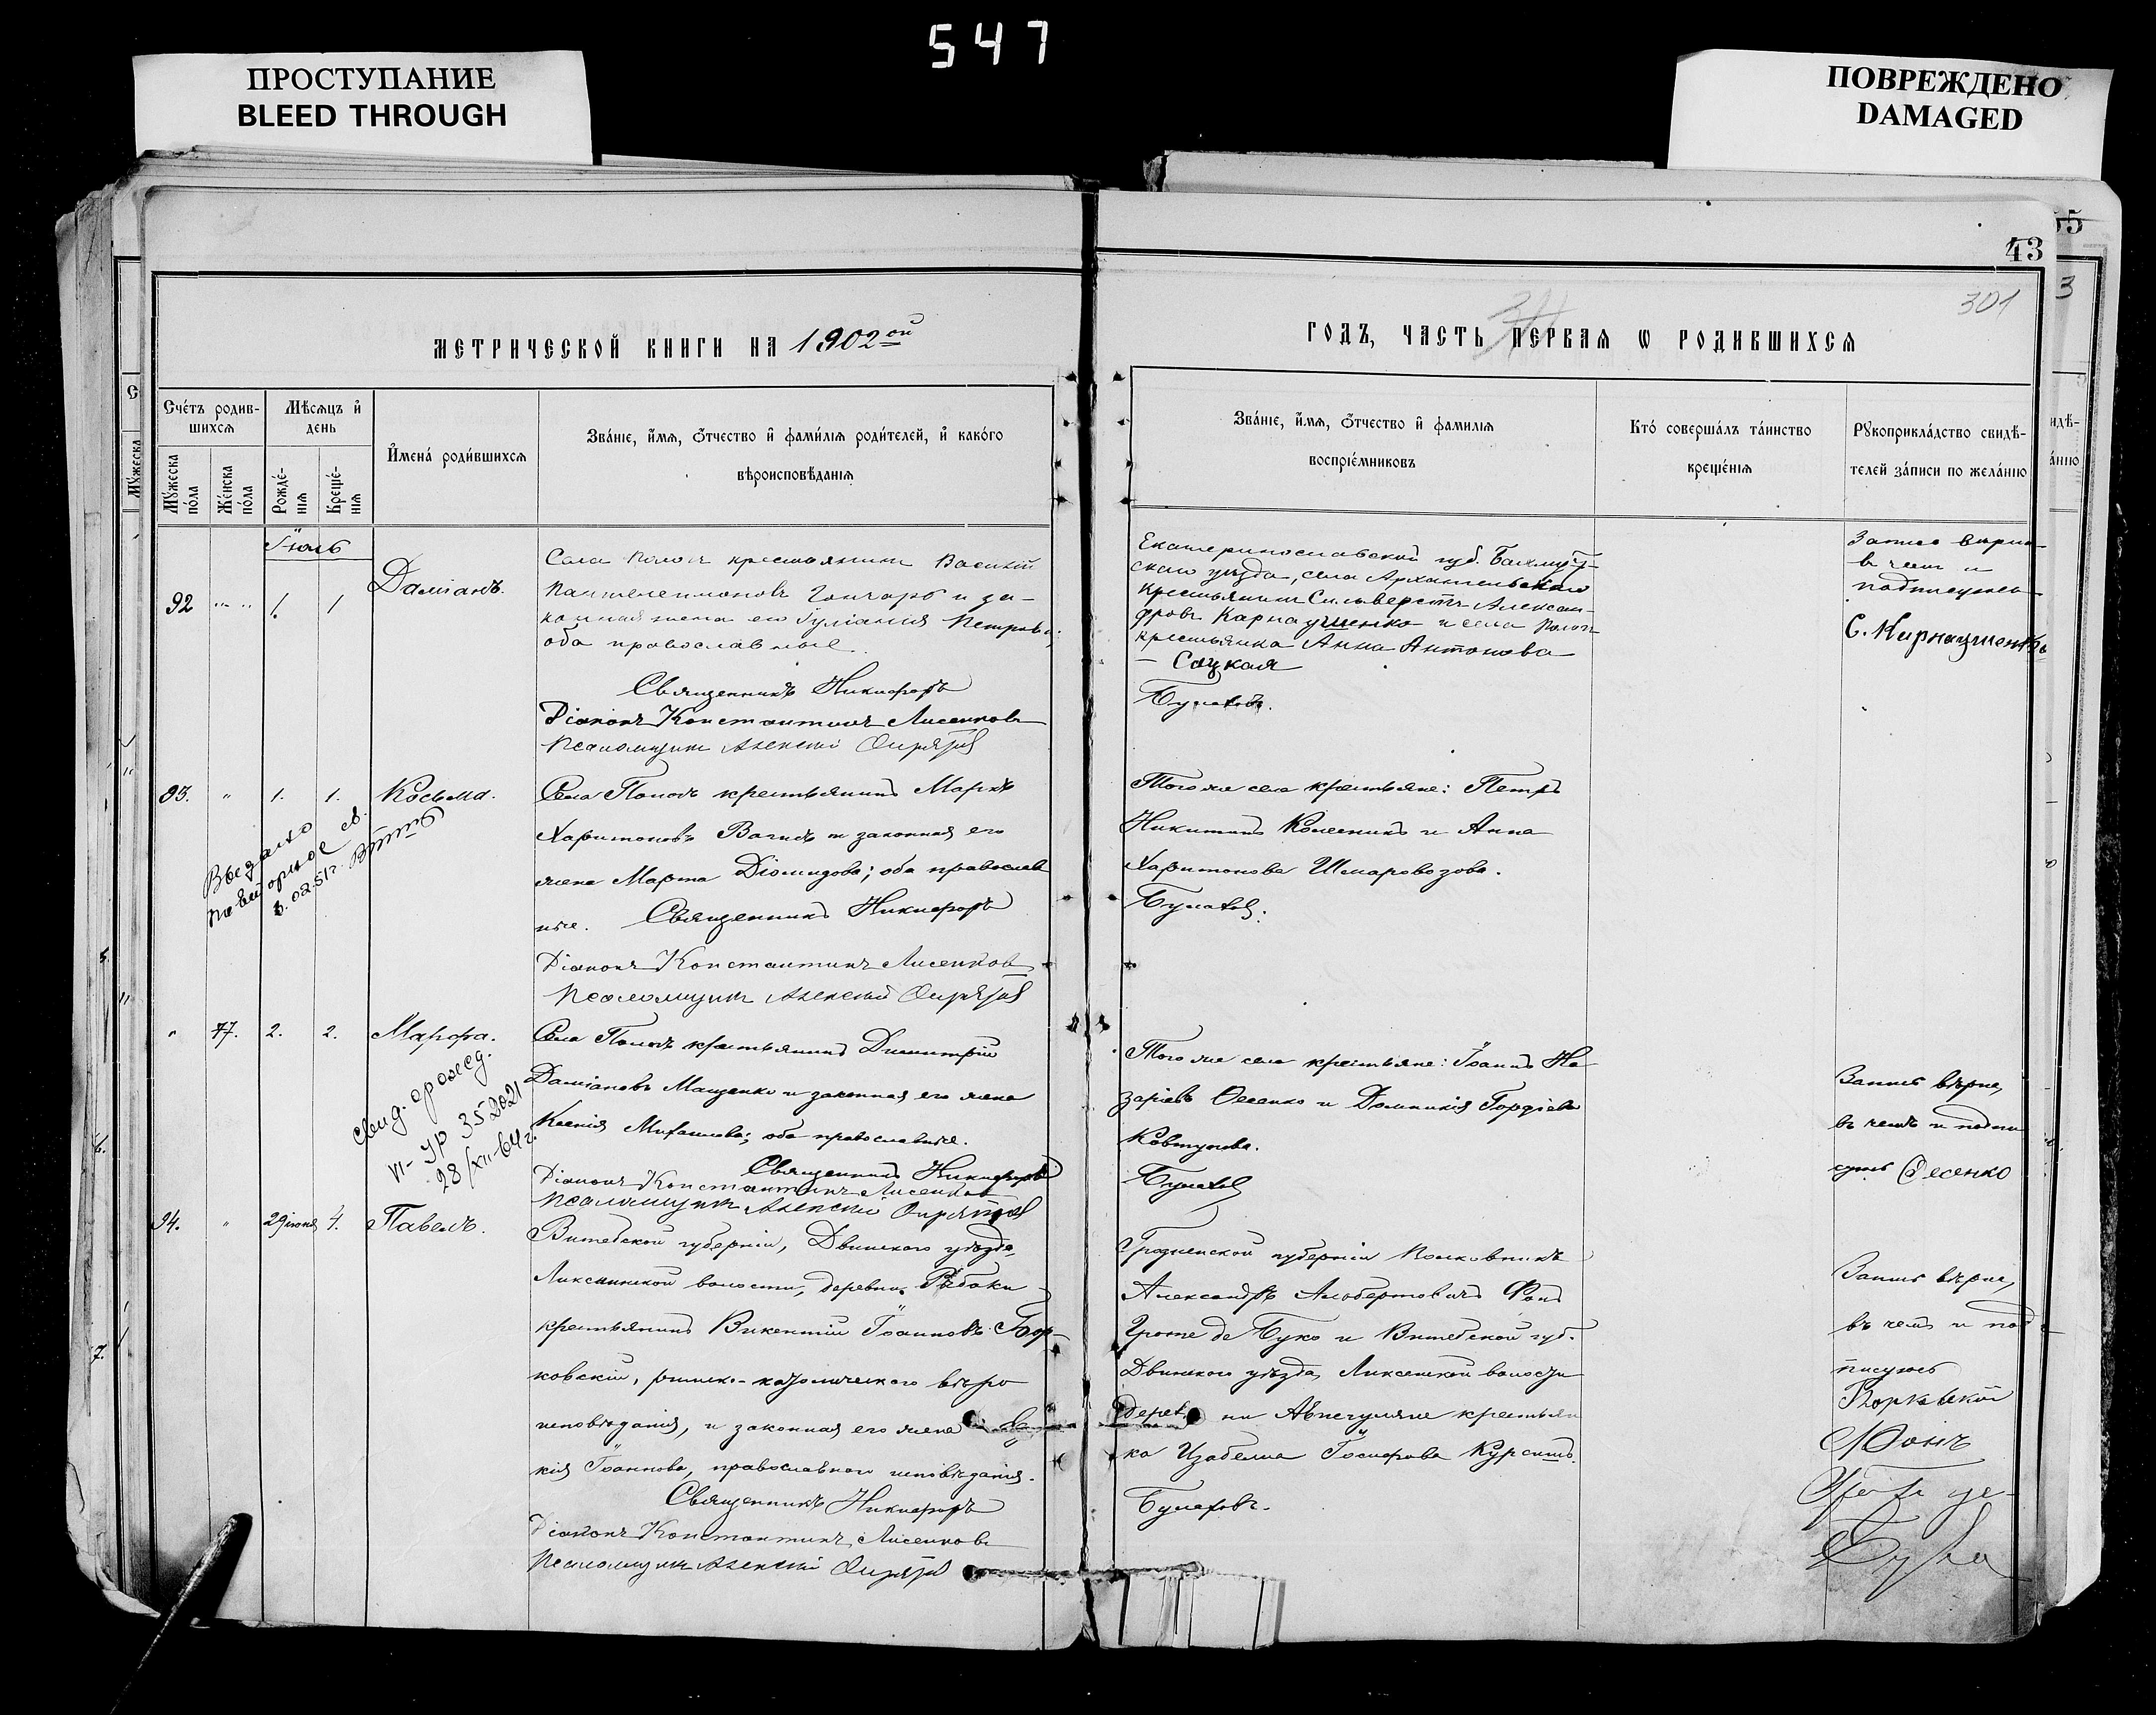 547
ПРОСТУПАНИЕ
BLEED THROUGH
ПОВРЕЖДЕНО
DAMAGED
55
43
301
3
МЕТРИЧЕСКОЙ КНИГИ НА 1902ой
ГОДЪ, ЧАСТЬ ПЕРВАЯ Ѡ РОДИВШИХСЯ
Счетъ родив-
шихся
Мѣсяцъ и
день
Имена родившихся
Званіе, имя, отчество и фамилія родителей, и какого
вѣроисповѣданія
Мужеска
пола
Женска
пола
Рожде-
нія
Креще-
нія
Званіе, имя, отчество и фамилія
воспріемниковъ
Кто совершалъ таинство
крещенія
Рукоприкладство свидѣ-
телей записи по желанію
Іюль
92 " " 1. 1 Даміанъ.
Села Пологъ крестьянинъ Василій
Пантелеимоновъ Гончаръ и за-
конная жена его Іуліанія Петрова;
оба православные.
Священникъ Никифоръ
Діаконъ Константинъ Лисенковъ
Псаломщикъ Алексій
Екатеринославской губ. Бахмут-
скаго уѣзда, села Архангельскаго
крестьянинъ Сильверстъ Алексан-
дровъ Карнаушенко и села Пологъ
крестьянка Анна Антонова
— Соцкая
Булатовъ.
Запись вѣрна
въ чемъ и
подписуюсь
С. Карнаушенко
93. " 1. 1. Косьма.
Села Пологъ крестьянинъ Маркъ
Харитоновъ и законная его
жена Марта Діомидова; оба православ
ные. Священникъ Никифоръ
Діаконъ Константинъ Лисенковъ
Псаломщикъ Алексій
Выдано
повторное св.
3.02.51г.
Того же села крестьяне: Петръ
Никитинъ Колесникъ и Анна
Харитонова Шмаровозова.
Булатовъ.
" 77. 2. 2. Марфа.
Села Пологъ крестьянинъ Димитрій
Даміановъ Мащенко и законная его жена
Ксенія Михаилова; оба православные.
Священникъ Никифоръ
Діаконъ Константинъ Лисенковъ
Псаломщикъ Алексій
свид. о рожд.
VI-УР 352021
28/XII-64г.
Того же села крестьяне: Іоаннъ На
заріевъ Осенко и Домникія Гордіева
Ковтунова.
Булатовъ
Запись вѣрна,
въ чемъ и подпи
суюсь Осенко
94. " 29 іюня 4. Павелъ.
Витебской губерніи, Двинскаго уѣзда
Ликснинской волости, деревни Рыбаки
крестьянинъ Викентій Іоанновъ Бор-
ковскій, римско-католическаго вѣро
исповѣданія, и законная его жена
кія Іоаннова, православнаго исповѣданія.
Священникъ Никифоръ
Діаконъ Константинъ Лисенковъ
Псаломщикъ Алексій
Гродненской губерніи Полковникъ
Александръ Альбертовичъ Фонъ
Гроте де Буко и Витебской губ.
Двинскаго уѣзда, Ликсенской волости
дерев ни крестьян
ка Изабелла Іосифова
Булатовъ.
Запись вѣрна,
въ чемъ и под
писуюсь
Борковскій
Фонъ
Гроте де-
Буко